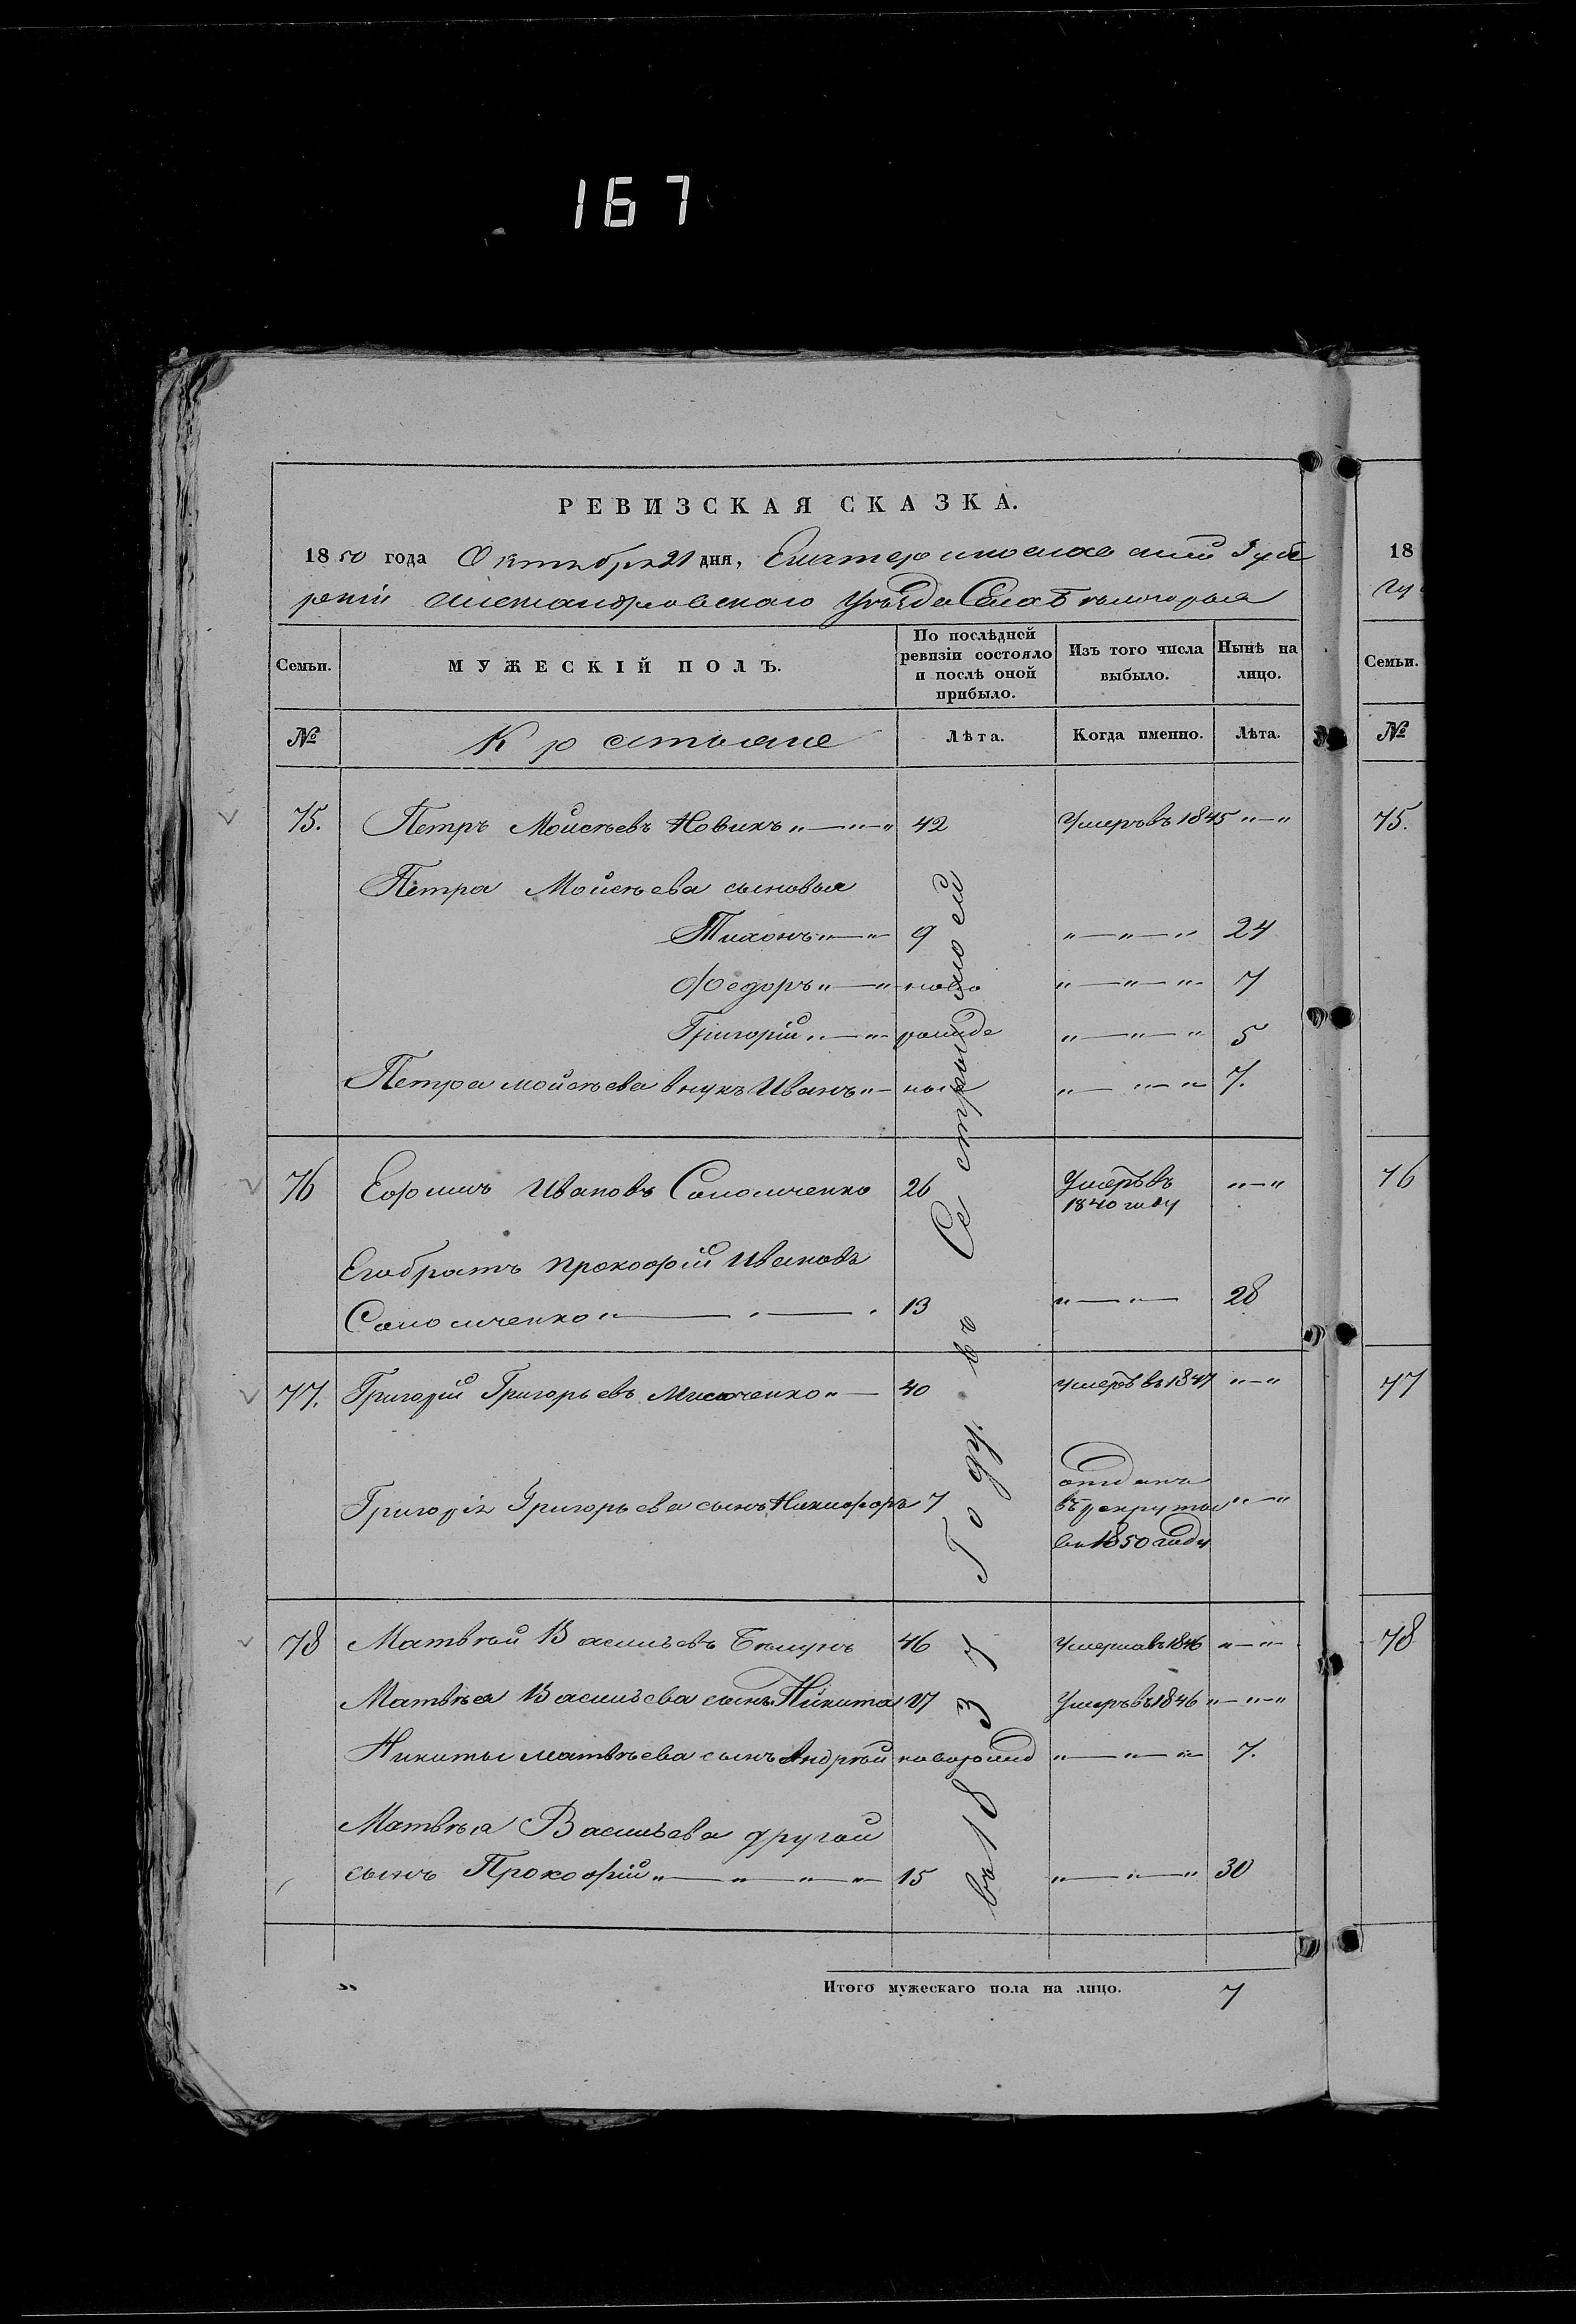 167
РЕВИЗСКАЯ СКАЗКА.
1850 года Октября 21 дня, Екатеринославской Губе
рніи Александровскаго Уѣзда Села Бѣлогорья
Семьи. МУЖЕСКІЙ ПОЛЪ. По послѣдней ревизіи состояло и послѣ оной прибыло. Изъ того числа выбыло. Нынѣ на лицо.
№ Крестьяне Лѣта. Когда именно. Лѣта.
75. Петръ Мойсѣевъ Новикъ 42 Умеръ въ 1845
Петра Мойсѣева сыновья
Тихонъ 9 24
Федоръ ново 7
Григорій рожде 5
Петра Мойсѣева внукъ Иванъ ные 7.
76 Ефимъ Ивановъ 26 Умеръ въ
1840 году
Его братъ Прокофій Ивановъ
13 28
77. Григорій Григорьевъ 40 умеръ въ 1847
Григорія Григорьева сынъ Никифоръ 7 отданъ
въ рекруты
въ 1850 году
78 Матвѣй Васильевъ Бѣлунъ 46 Умеръ въ 1846
Матвѣя Васильева сынъ Никита 17 Умеръ въ 1846
Никиты Матвѣева сынъ Андрѣй новорожд 7.
Матвѣя Васильева другой
сынъ Прокофій 15 30
Итого мужескаго пола на лицо. 7
18
Семьи.
№
75.
76
77
78